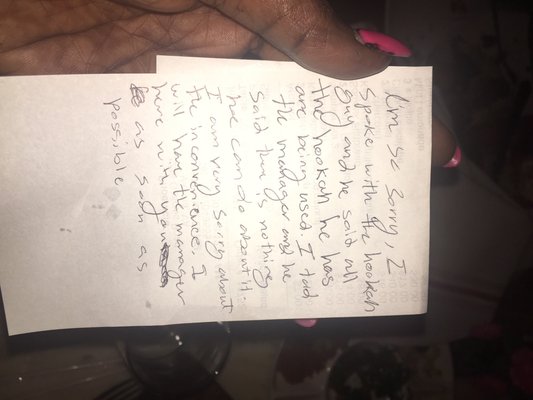 I'm so sorry, I
spoke with the hookah
guy and he said all
the hookah he has
are being used. I told
the manager and he
said there is nothing
he can do about it.
I am very sorry about
the inconvenience, I
will have the manager
here with you
as soon as
possible